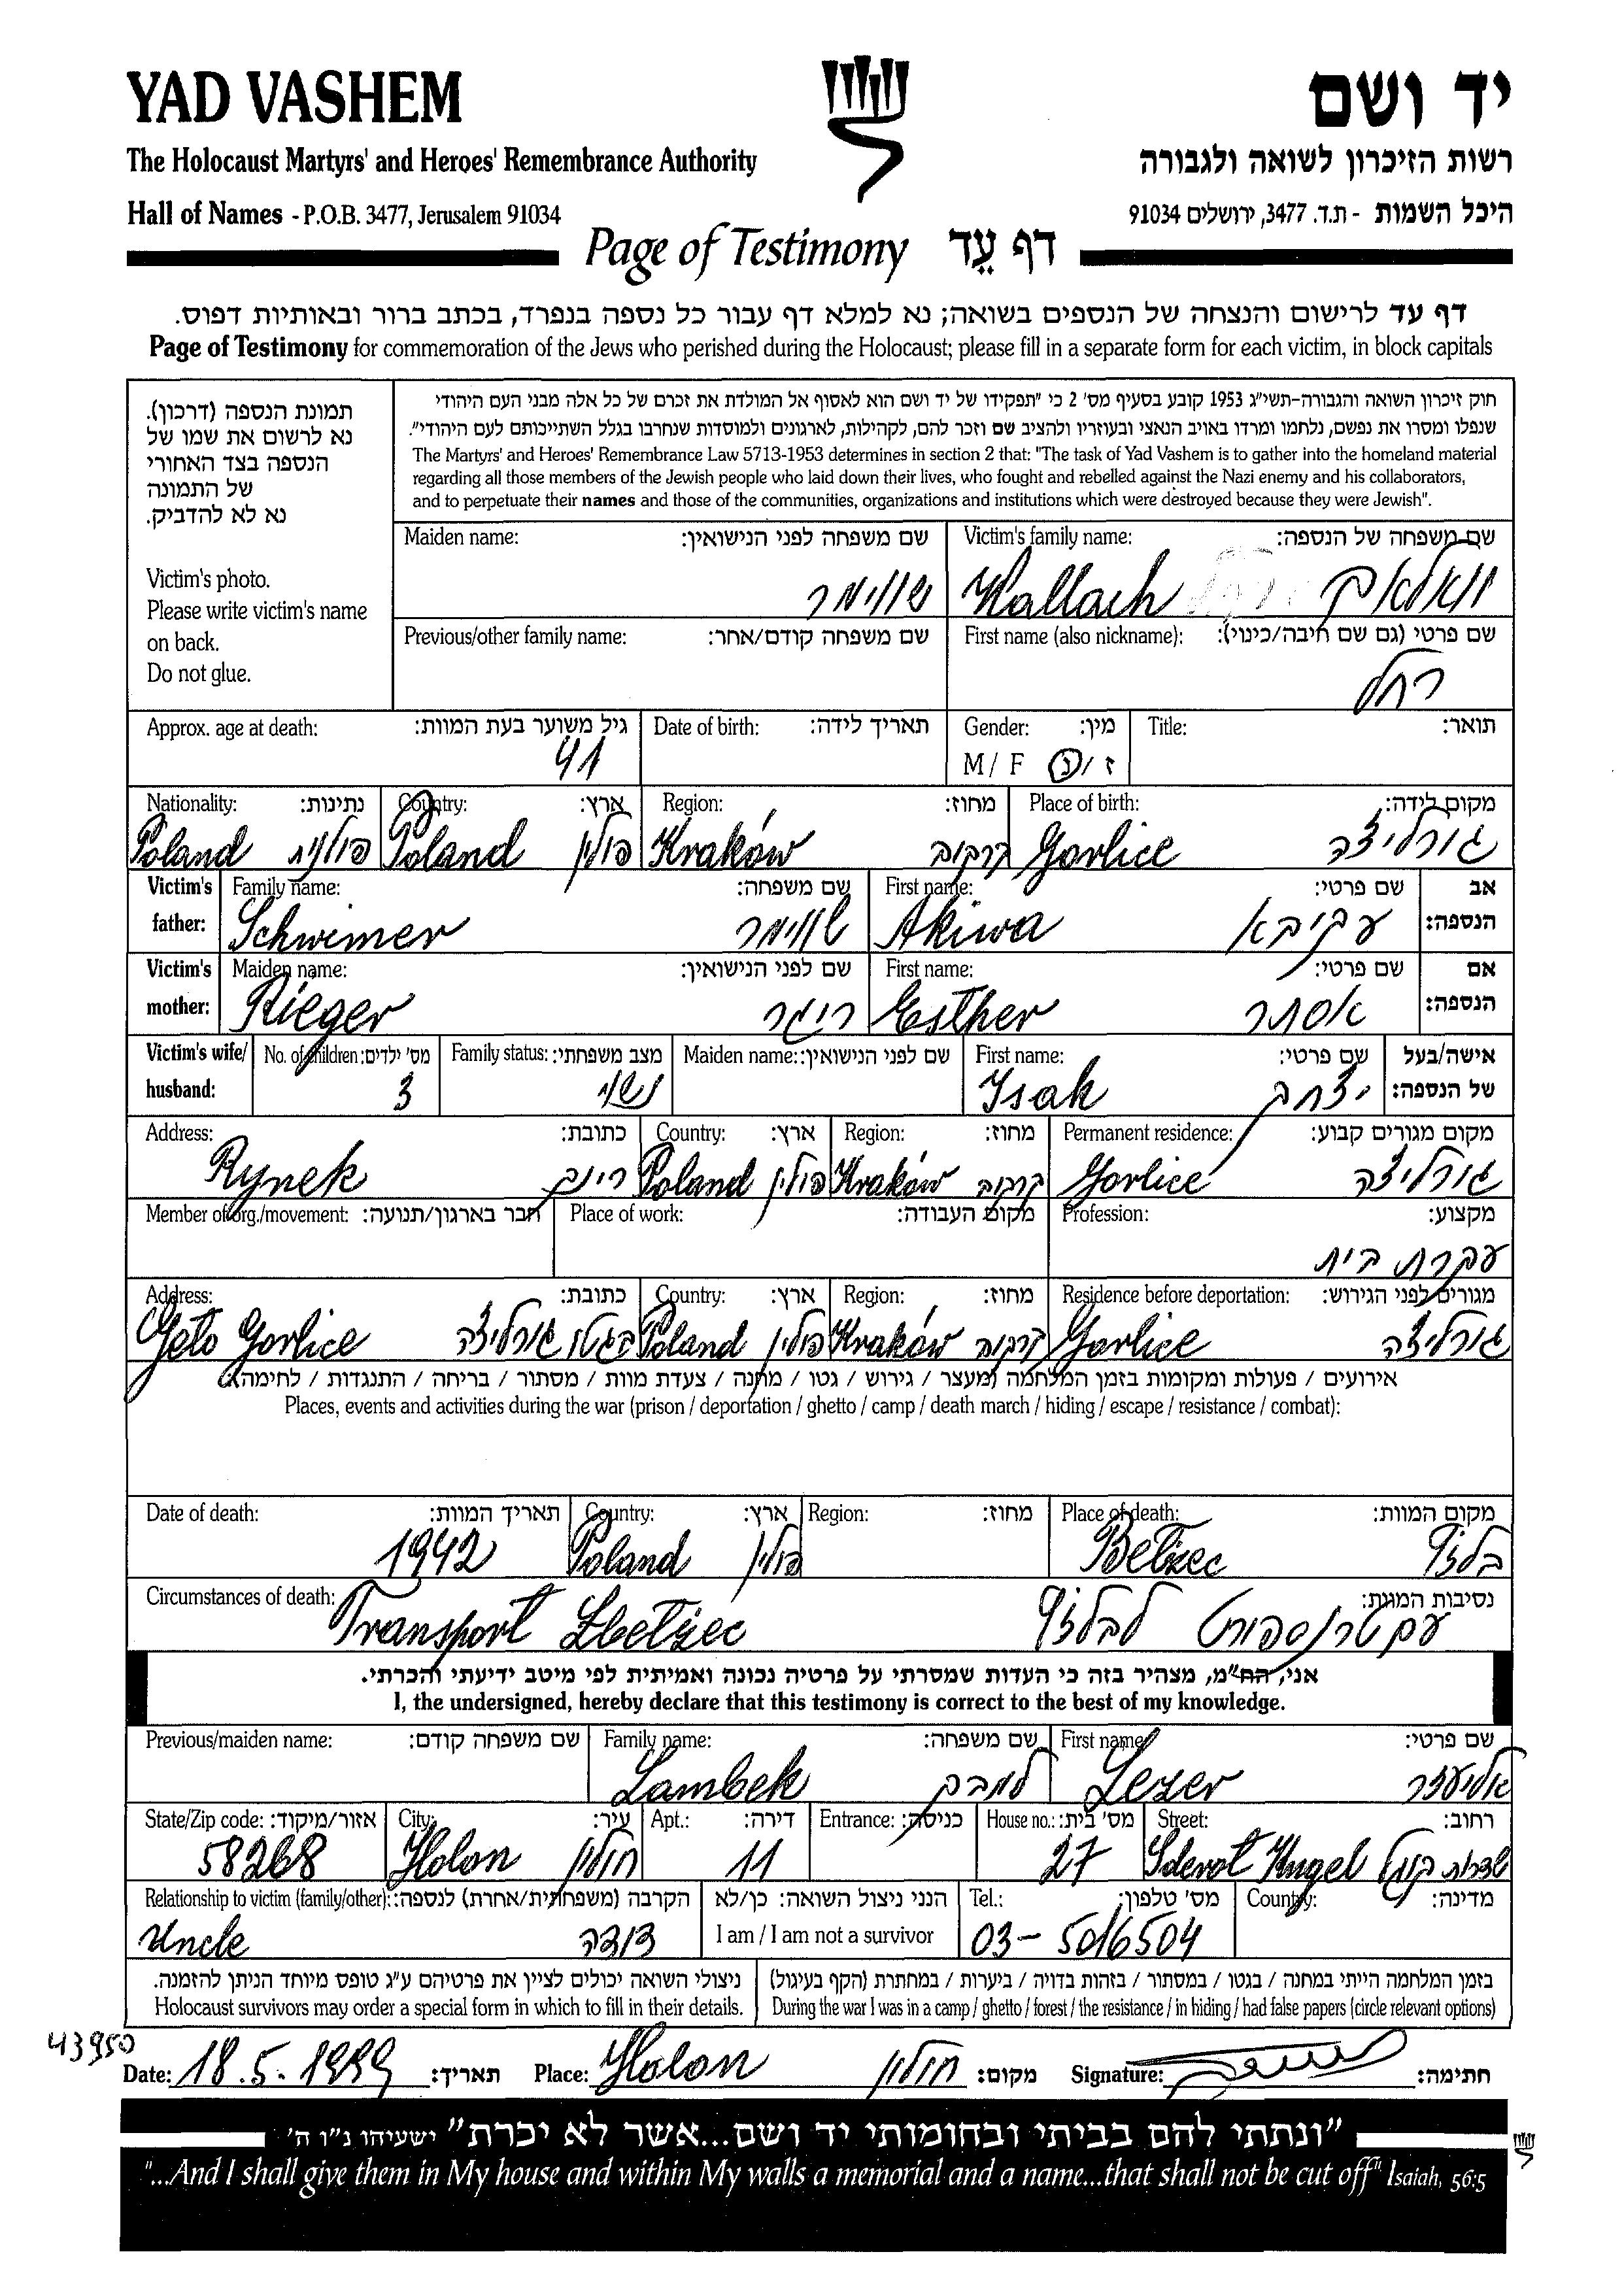 YAD VASHEM
יד ושם
The Holocaust Martyrs' and Heroes' Remembrance Authority
רשות הזיכרון לשואה ולגבורה
Hall of Names - P.O.B. 3477, Jerusalem 91034
היכל השמות - ת.ד. 3477, ירושלים 91034
Page of Testimony דף עֵד
דף עד לרישום והנצחה של הנספים בשואה; נא למלא דף עבור כל נספה בנפרד, בכתב ברור ובאותיות דפוס.
Page of Testimony for commemoration of the Jews who perished during the Holocaust; please fill in a separate form for each victim, in block capitals
תמונת הנספה (דרכון).
נא לרשום את שמו של
הנספה בצד האחורי
של התמונה
נא לא להדביק.
Victim's photo.
Please write victim's name
on back.
Do not glue.
חוק זיכרון השואה והגבורה-תשי"ג 1953 קובע בסעיף מס' 2 כי "תפקידו של יד ושם הוא לאסוף אל המולדת את זכרם של כל אלה מבני העם היהודי
שנפלו ומסרו את נפשם, נלחמו ומרדו באויב הנאצי ובעוזריו ולהציב שם וזכר להם, לקהילות, לארגונים ולמוסדות שנחרבו בגלל השתייכותם לעם היהודי".
The Martyrs' and Heroes' Remembrance Law 5713-1953 determines in section 2 that: "The task of Yad Vashem is to gather into the homeland material
regarding all those members of the Jewish people who laid down their lives, who fought and rebelled against the Nazi enemy and his collaborators,
and to perpetuate their names and those of the communities, organizations and institutions which were destroyed because they were Jewish".
Maiden name: שם משפחה לפני הנישואין: Victim's family name: שם משפחה של הנספה:
שווימר Wallach וואלאך
Previous/other family name: שם משפחה קודם/אחר: First name (also nickname): שם פרטי (גם שם חיבה/כינוי):
רחל
Approx. age at death: גיל משוער בעת המוות: Date of birth: תאריך לידה: Gender: מין: Title: תואר:
41 M/ F ז /נ
Nationality: נתינות: Country: ארץ: Region: מחוז: Place of birth: מקום לידה:
Poland פולנית Poland פולין Kraków קרקוב Gorlice גורליצה
Victim's father: Family name: שם משפחה: First name: שם פרטי: אב הנספה:
Schwimer שווימר Akiwa עקיבא
Victim's mother: Maiden name: שם לפני הנישואין: First name: שם פרטי: אם הנספה:
Rieger ריגר Esther אסתר
Victim's wife/ husband: No. of children: מס' ילדים: Family status: מצב משפחתי: Maiden name: שם לפני הנישואין: First name: שם פרטי: אישה/בעל של הנספה:
3 נשוי Isak יצחק
Address: כתובת: Country: ארץ: Region: מחוז: Permanent residence: מקום מגורים קבוע:
Rynek רינק Poland פולין Kraków קרקוב Gorlice גורליצה
Member of org./movement: חבר בארגון/תנועה: Place of work: מקום העבודה: Profession: מקצוע:
עקרת בית
Address: כתובת: Country: ארץ: Region: מחוז: Residence before deportation: מגורים לפני הגירוש:
Geto Gorlice בגטו גורליצה Poland פולין Kraków קרקוב Gorlice גורליצה
אירועים / פעולות ומקומות בזמן המלחמה (מעצר / גירוש / גטו / מחנה / צעדת מוות / מסתור / בריחה / התנגדות / לחימה):
Places, events and activities during the war (prison / deportation / ghetto / camp / death march / hiding / escape / resistance / combat):
Date of death: תאריך המוות: Country: ארץ: Region: מחוז: Place of death: מקום המוות:
1942 Poland פולין Betżec בלזץ
Circumstances of death: נסיבות המוות:
Transport עם טרנספורט לבלזץ
אני, הח"מ, מצהיר בזה כי העדות שמסרתי על פרטיה נכונה ואמיתית לפי מיטב ידיעתי והכרתי.
I, the undersigned, hereby declare that this testimony is correct to the best of my knowledge.
Previous/maiden name: שם משפחה קודם: Family name: שם משפחה: First name: שם פרטי:
Lambek למבק Lezer אליעזר
State/Zip code: אזור/מיקוד: City: עיר: Apt.: דירה: Entrance: כניסה: House no.: מס' בית: Street: רחוב:
58268 Holon חולון 11 27 Sderot Kugel שדרות קוגל
Relationship to victim (family/other): הקרבה (משפחתית/אחרת) לנספה: הנני ניצול השואה: כן/לא Tel.: מס' טלפון: Country: מדינה:
Uncle דודה I am / I am not a survivor 03- 5016504
ניצולי השואה יכולים לציין את פרטיהם ע"ג טופס מיוחד הניתן להזמנה. בזמן המלחמה הייתי במחנה / בגטו / במסתור / בזהות בדויה / ביערות / במחתרת (הקף בעיגול)
Holocaust survivors may order a special form in which to fill in their details. During the war I was in a camp / ghetto / forest / the resistance / in hiding / had false papers (circle relevant options)
43950
Date: 18.5.1999 תאריך: Place: Holon חולון מקום: Signature: חתימה:
"ונתתי להם בביתי ובחומותי יד ושם...אשר לא יכרת" ישעיהו נ"ו ה'
"...And I shall give them in My house and within My walls a memorial and a name...that shall not be cut off" Isaiah, 56:5